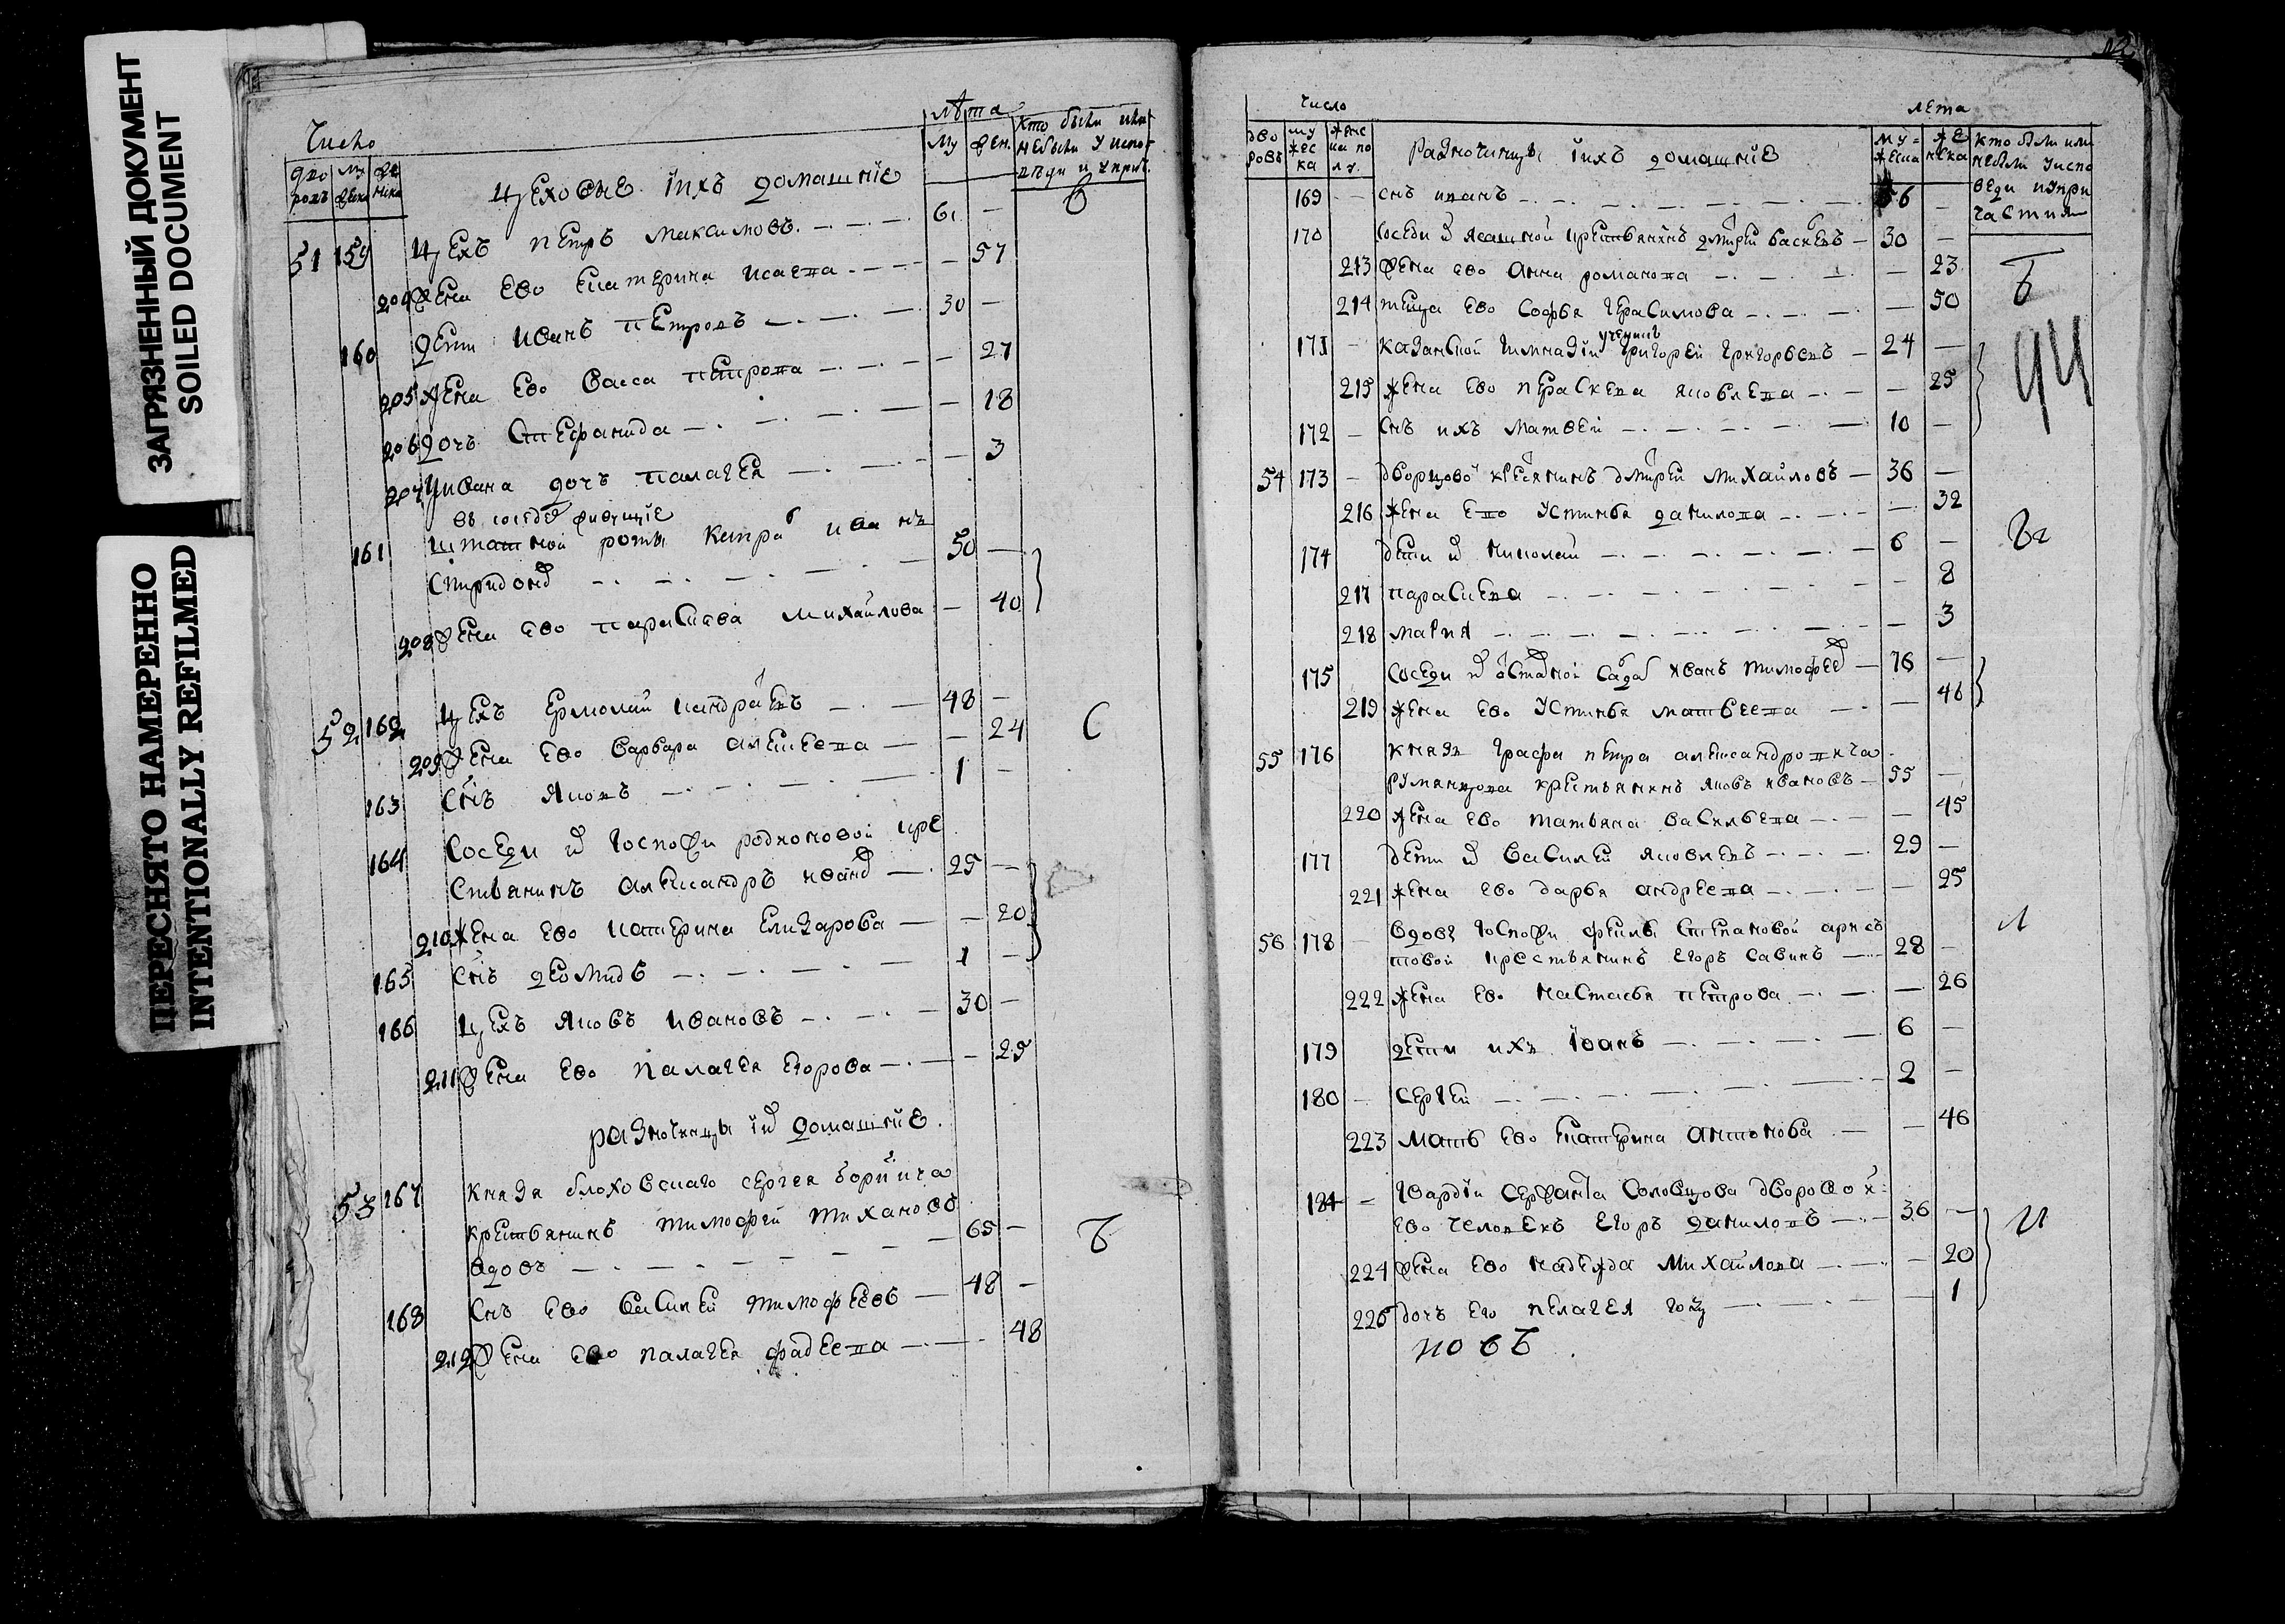 ЗАГРЯЗНЕННЫЙ ДОКУМЕНТ
SOILED DOCUMENT
ПЕРЕСНЯТО НАМЕРЕННО
INTENTIONALLY REFILMED
Число
лѣта
дво ровъ
му жеска
же нска
цеховые іихъ домашніе
му
жен.
кто были или небыли у испо веди и у прич.
51 159 цехъ петръ максимовъ 61 —
204 жена ево екатерина исаева — 57
160 дети иванъ петровъ 30 —
205 жена ево васса петрова — 27
206 дочь стефанида — 18
207 у ивана дочь палагея — 3
въ соседе живущіе
161 штатной роты иванъ
спиридоно 50 —
208 жена ево параскева михайлова — 40
52 162 цехъ ермолай кандратевъ 48 —
209 жена ево варвара алексеева — 24
С
163 снъ яковъ 1 —
164 соседи госпожи родионовой кре
стьянинъ александръ ивано 25 —
210 жена ево катерина елизарова — 20
165 снъ деомидъ 1 —
166 цехъ яковъ ивановъ 30 —
211 жена ево палагея егорова — 25
разночинцы іи домашніе.
53 167 князя болховскаго сергея борисича
крестьянинъ тимофей тихановъ
вдовъ 65 —
168 снъ ево василей тимофеевъ 48 —
212 жена ево палагея фадеева — 48
Число
лета
дво ровъ
му жес ка
женс ка по лу.
разночинцы іихъ домашніе
му жеска
же нска
кто были или небыли у испо веди и у при частия
169 снъ иванъ 6 —
170 соседи ясашной крестьянинъ дмитрей васильевъ 30 —
213 жена ево анна романова — 23
214 теща ево софья герасимова — 50
ученикъ
171 казанской гимназіи григорей григорьевъ 24 —
215 жена ево параскева яковлева — 25
172 снъ ихъ матвей 10 —
54 173 дворцовой кресянинъ дмитрей михайловъ 36 —
216 жена ево устинья данилова — 32
174 дети и николай 6 —
217 параскева — 8
218 мария — 3
175 соседи отставной салдатъ иванъ тимофее 76 —
219 жена ево устинья матвеева — 46
55 176 князя графа петра александровича
румянцова крестьянинъ яковъ ивановъ 55 —
220 жена ево татьяна васильева — 45
177 дети и василей яковлевъ 29 —
221 жена ево дарья андреева — 25
56 178 вдовы госпожи феклы степановой
крестьянинъ егоръ савинъ 28 —
222 жена ево настасья петрова — 26
179 дети ихъ іванъ 6 —
180 сергей 2 —
223 мать ево екатерина антонова — 46
181 гвардіи сержанта соловцова дворовой
ево человекъ егоръ даниловъ 36 —
224 жена ево надежда михайлова — 20
225 дочь его пелагея — 1
новъ